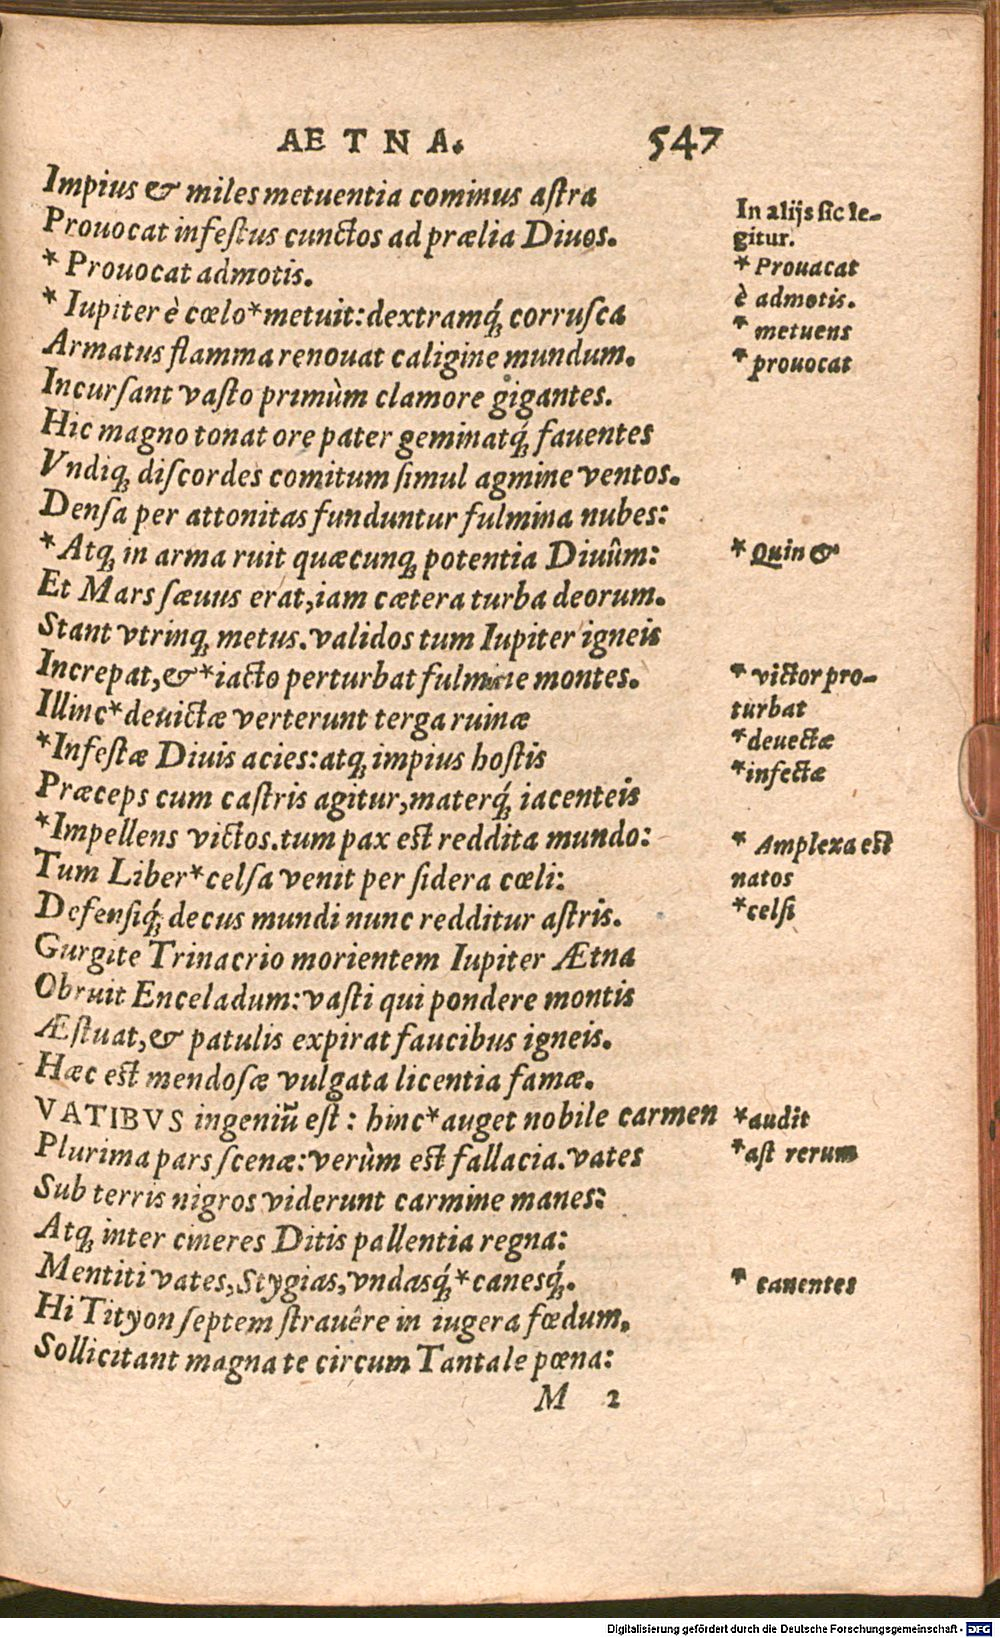 AETNA. 547
Impius & miles metuentia cominus aſtra
Prouocat infeſtus cunctos ad prælia Diuos.
* Prouocat admotis.
* Iupiter è cœlo*metuit: dextramq́; corruſca
Armatus flamma renouat caligine mundum.
Incurſant vaſto primùm clamore gigantes.
Hic magno tonat ore pater geminatq́; fauentes
Vndiq; diſcordes comitum ſimul agmine ventos.
Denſa per attonitas funduntur fulmina nubes:
* Atq; in arma ruit quæcunq; potentia Diuûm:
Et Mars ſæuus erat, iam cætera turba deorum.
Stant vtrinq; metus. validos tum Iupiter igneis
Increpat, &*iacto perturbat fulmine montes.
Illinc*deuictæ verterunt terga ruinæ
*Infeſtæ Diuis acies: atq; impius hoſtis
Præceps cum caſtris agitur, materq́; iacenteis
*Impellens victos. tum pax est reddita mundo:
Tum Liber*celſa venit per ſidera cœli:
Defenſiq́; decus mundi nunc redditur aſtris.
Gurgite Trinacrio morientem Iupiter Ætna
Obruit Enceladum: vaſti qui pondere montis
Æſtuat, & patulis expirat faucibus igneis.
Hæc est mendoſæ vulgata licentia famæ.
VATIBVS ingeniũ eſt: hinc*auget nobile carmen
Plurima pars ſcenæ: verùm est fallacia. vates
Sub terris nigros viderunt carmine manes:
Atq; inter cineres Ditis pallentia regna:
Mentiti vates, Stygias, vndasq́;*canesq́;.
Hi Tityon ſeptem ſtrauêre in iugera fœdum.
Sollicitant magna te circum Tantale pœna:
M 2
In alijs ſic le-
gitur.
* Prouacat
è admotis.
* metuens
* prouocat
* Quin &
* victor pro-
turbat
*deuectæ
*infectæ
* Amplexa est
natos
*celſi
*audit
*aſt rerum
* canentes
Digitalisierung gefördert durch die Deutsche Forschungsgemeinschaft - DFG